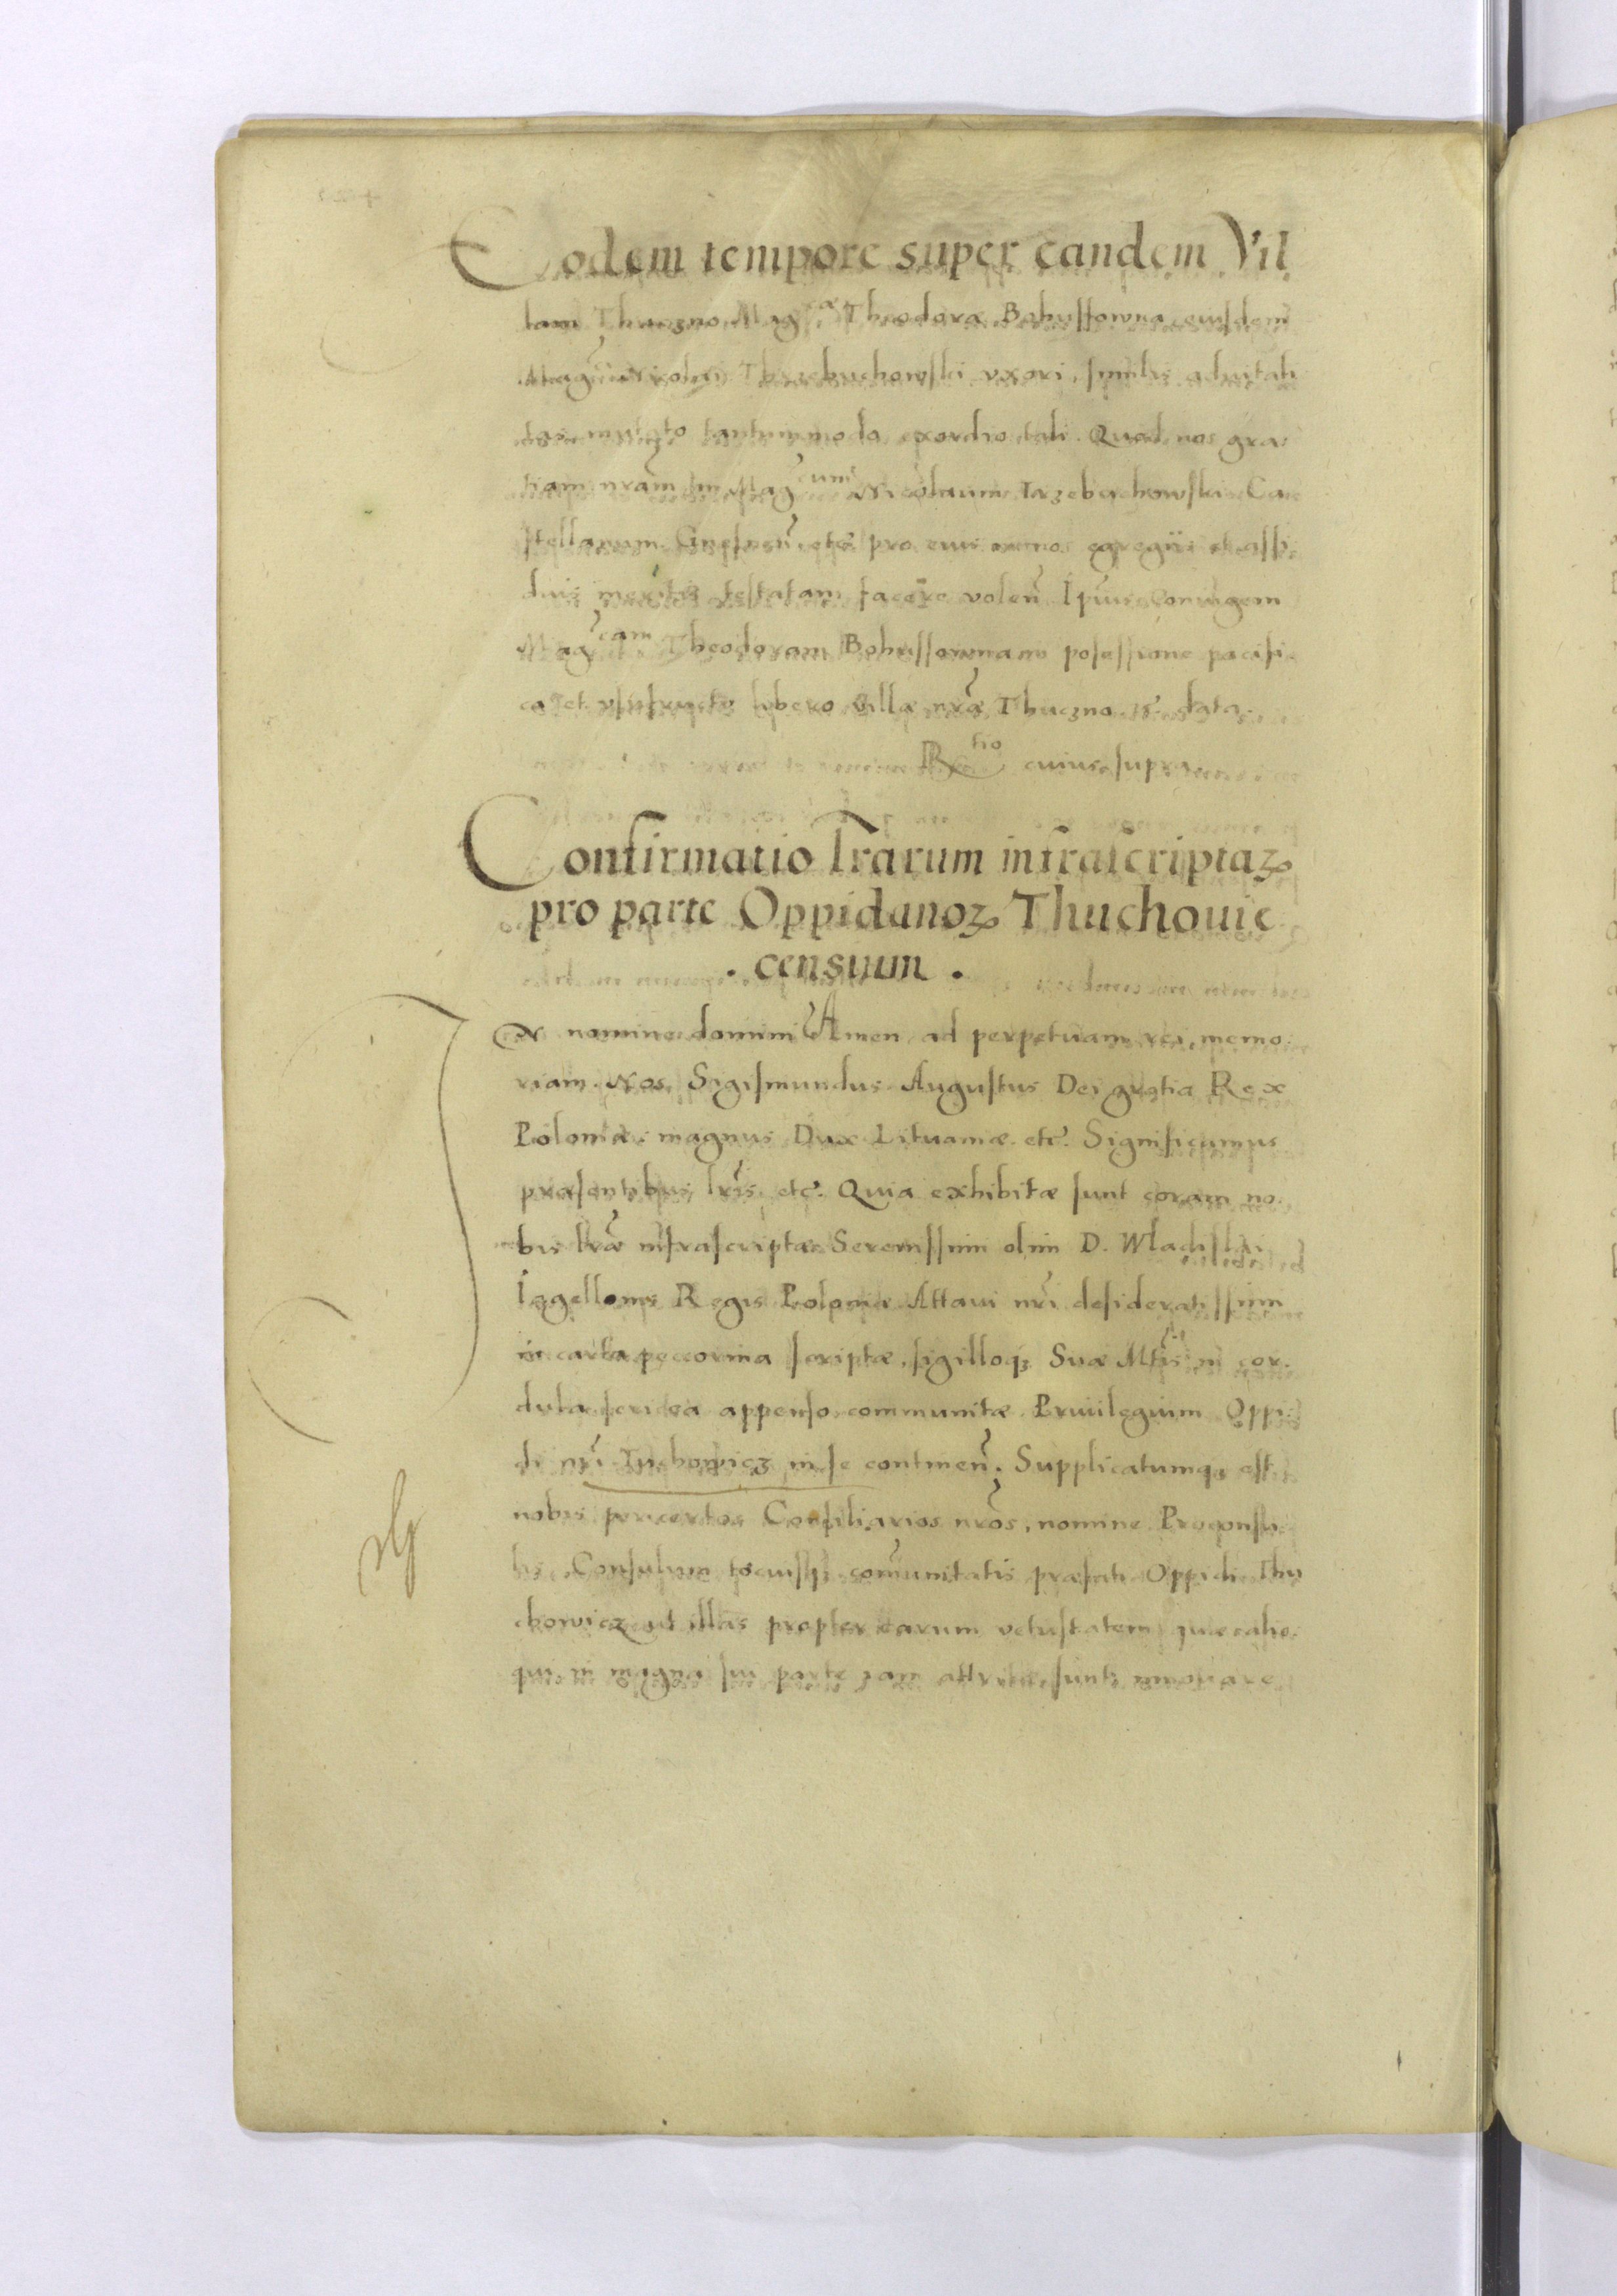 Eodem tempore super eandem Vil
lam Thuczno Mag͞cæ Theodoræ Bohussowna eiusdem
Mag͞ci Nicolai Thrzebuchowski vxori, similis aduitali
tas mutato tantummodo exordio tali. Quod nos gra
tiam nr͞am in Mag͞cum Nicolaum Trzebuchowski Ca
stellanum Gnesnen͞. etc. pro eius egregiis et assi
duis meritis testatam facere volen͞ Ip͞ius Coniugem
Mag͞cam Theodoram Bohussownam posessione pacifi
ca et vsufructu libero villæ nr͞æ Thuczno etc. data.
R͞tio cuius supra
Confirmatio Lr͞arum infrascriptaꝝ
pro parte Oppidanoꝝ Thuchouie
. censium .
IN nomine domini Amen ad perpetuam rei memo
riam. Nos Sigismundus Augustus Dei gratia Rex
Poloniæ. magnus Dux Lituaniæ etc. Significamus
præsentibus lr͞is etc. Quia exhibitæ sunt coram no
bis lr͞æ infrascriptæ Serenissimi olim D. Wladislai
Iagellonis Regis Poloniæ Attaui nr͞i desideratissimi
in carta pecorina scriptæ, sigilloq; Suæ M͞tis in cor
dula sericea appenso communitæ Priuilegium Oppi
di nr͞i Tuchowicz in se continen͞. Supplicatumq; est
nobis per certos Consiliarios nr͞os, nomine Proconsu
lis, Consulum totiusq; com͞unitatis præfati Oppidi Thu
chowicz ut illas propter earum vetustatem, quæ
in magna sui parte iam attritæ sunt, innouare